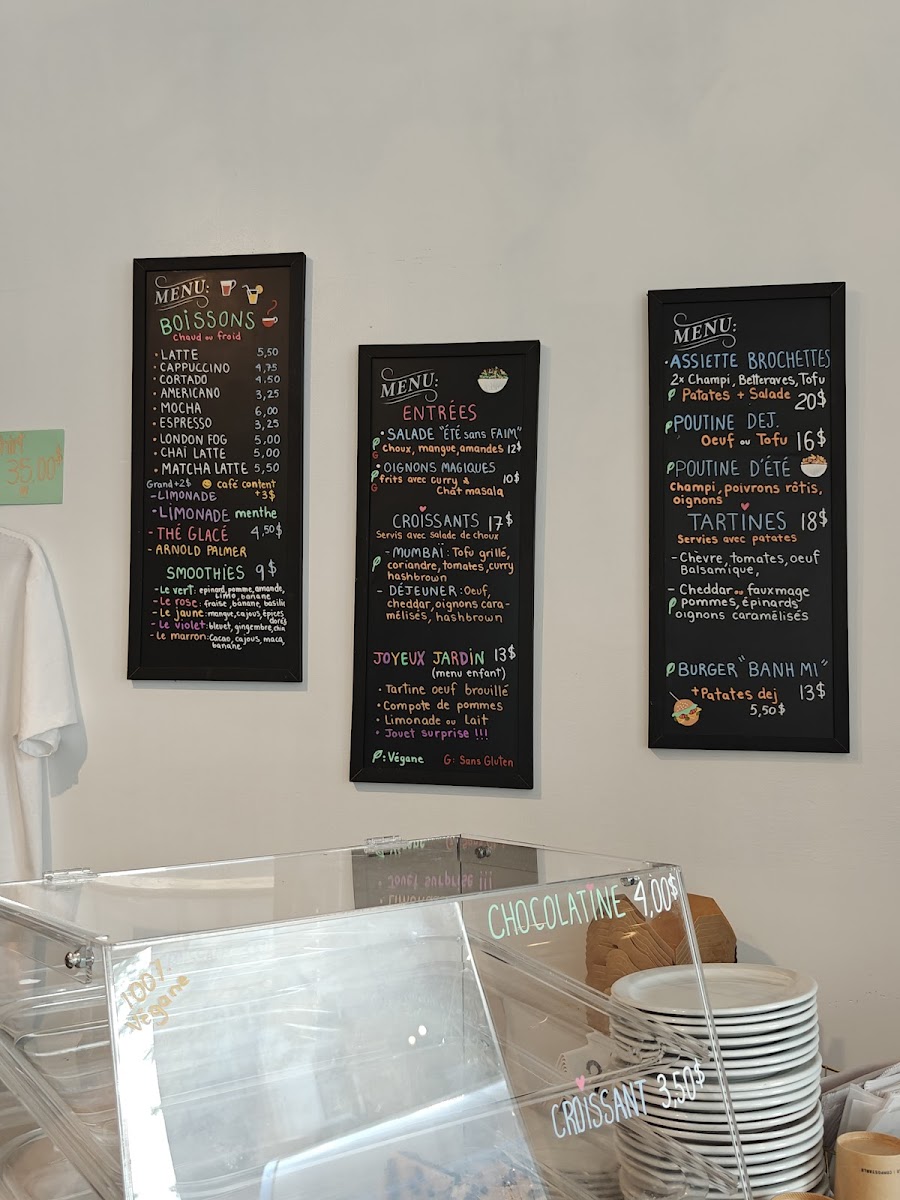 35,00$
MENU:
BOISSONS
chaud ou froid
• LATTE 5,50
• CAPPUCCINO 4,75
• CORTADO 4,50
• AMERICANO 3,25
• MOCHA 6,00
• ESPRESSO 3,25
• LONDON FOG 5,00
• CHAÏ LATTE 5,00
• MATCHA LATTE 5,50
Grand +2$ café content +3$
- LIMONADE
- LIMONADE menthe
- THÉ GLACÉ 4,50$
- ARNOLD PALMER
SMOOTHIES 9$
- Le vert: épinard, pomme, amande,
limo, banane
- Le rose: fraise, banane, basilic
- Le jaune: mangue, cajous, épices
dorés
- Le violet: bleuet, gingembre, chia
- Le marron: Cacao, cajous, maca,
banane
MENU:
ENTRÉES
• SALADE "ÉTÉ sans FAIM"
G Choux, mangue, amandes 12$
• OIGNONS MAGIQUES
G frits avec curry & 10$
Chat masala
CROISSANTS 17$
Servis avec salade de choux
- MUMBAÏ: Tofu grillé,
coriandre, tomates, curry
hashbrown
- DÉJEUNER: Oeuf,
cheddar, oignons cara-
mélisés, hashbrown
JOYEUX JARDIN 13$
(menu enfant)
• Tartine oeuf brouillé
• Compote de pommes
• Limonade ou Lait
• Jouet surprise !!!
: Végane G: Sans Gluten
MENU:
• ASSIETTE BROCHETTES
2x Champi, Betteraves, Tofu
Patates + Salade 20$
POUTINE DEJ.
Oeuf ou Tofu 16$
POUTINE D'ÉTÉ
Champi, poivrons rôtis,
oignons
TARTINES 18$
Servies avec patates
- Chèvre, tomates, oeuf
Balsamique,
- Cheddar ou fauxmage
pommes, épinards
oignons caramélisés
BURGER "BANH MI"
+Patates dej 13$
5,50$
CHOCOLATINE 4,00$
100%
Végane
CROISSANT 3,50$